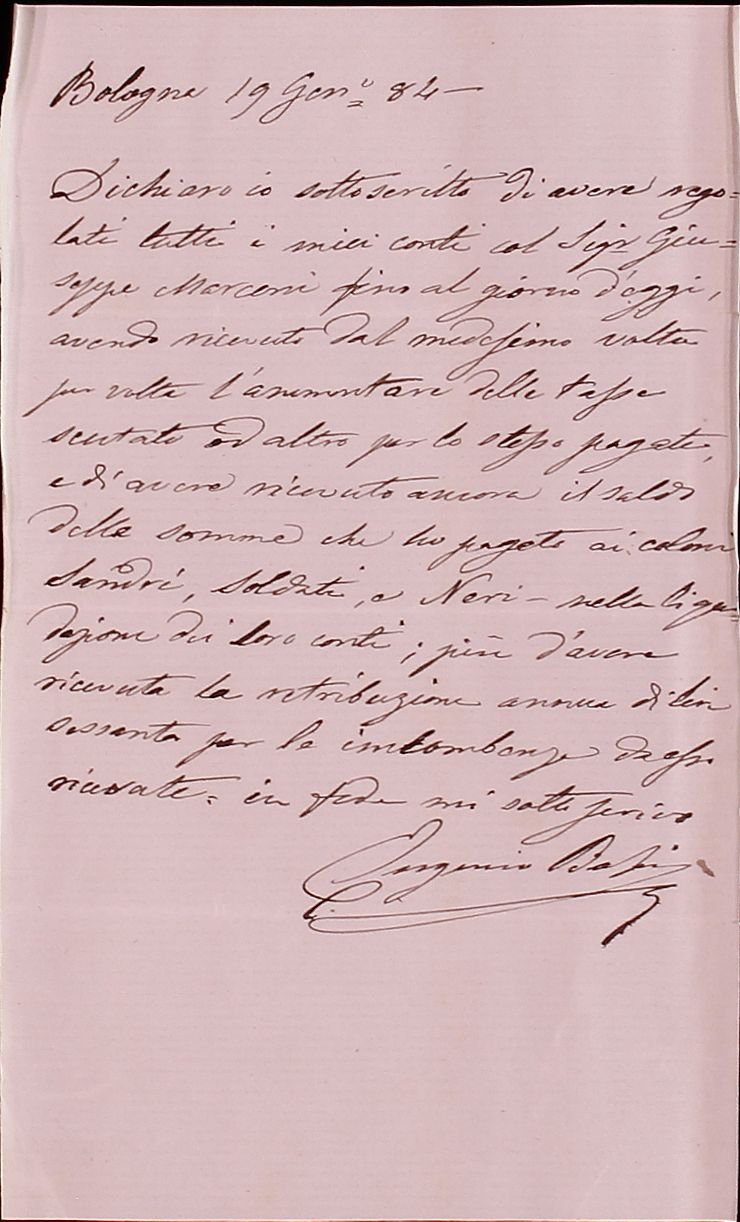 Bologna 19 Genº 84 —
Dichiaro io sottoscritto di avere rego=
lati tutti i miei conti col Sigr Giu=
seppe Marconi fino al giorno d'oggi,
avendo ricevuto dal medesimo volta
per volta l'ammontare delle tasse
scutate ed altro per lo stesso pagate,
e di avere ricevuto ancora il saldo
delle somme che ho pagate ai coloni
Sandri, Soldati, e Neri – nella liqui=
dazione dei loro conti; più d'avere
ricevuta la retribuzione annua di lire
sessanta per le incombenze da esso
ricevute = in fede mi sottoscrivo
Eugenio